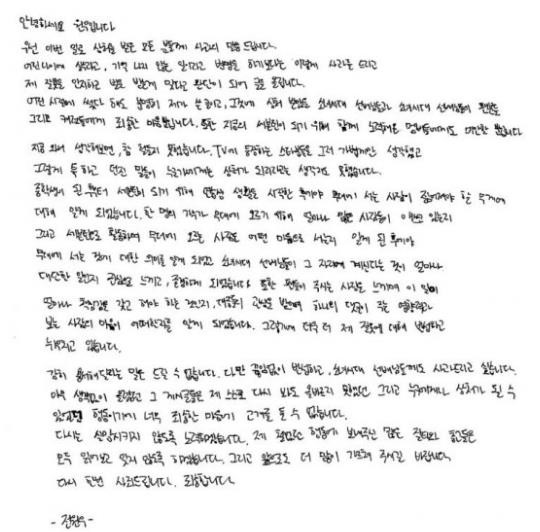 안녕하세요 원우입니다
우선 이번 일로 상처를 받은 모든 분들께 사과의 말씀 드립니다.
어린나이에 썼다고, 기억 나지 않는 일이라고 변명을 하기보다는 이렇게 사과를 드리고
제 잘못을 인지하고 벌을 받는게 맞다고 판단이 되어 글을 올립니다.
어린 시절에 썼다 해도 분명히 제가 쓴 글이고, 그것에 상처 받았을 소녀시대 선배님들과 소녀시대 선배님들의 팬분들
그리고 캐럿들에게 죄송한 마음뿐입니다. 또한 지금의 세븐틴이 되기 위해 함께 노력해온 멤버들에게도 미안할 뿐입니다
지금 와서 생각해보면, 참 철없지 못했습니다. TV에 등장하는 스타분들을 그저 가볍게만 생각했고
그렇게 툭 하고 던진 말들이 누군가에게는 상처가 되리라고는 생각지도 못했습니다.
중학생이 된 후부터 세븐틴이 되기 위해 연습생 생활을 시작한 후에야 무대에 서는 사람이 짊어져야 할 무게에
대해 알게 되었습니다. 한 명의 가수가 무대에 오르기 위해 얼마나 많은 사람들이 애쓰고 있는지
그리고 세븐틴으로 활동하며 무대에 오르는 사람은 어떤 마음으로 서는지 알게 된 후에야
무대에 서는 것에 대한 의미를 알게 되었고 소녀시대 선배님들이 그 자리에 계신다는 것이 얼마나
대단한 일인지 진심으로 느끼고, 존경하게 되었습니다 또한 팬들이 주시는 사랑을 느끼며 이 일이
얼마나 책임감을 갖고 해야 하는 것인지, 대중들의 관심을 받으며 하나의 댓글이 주는 영향력과
보는 사람의 마음이 어떠한지를 알게 되었습니다. 그렇기에 더욱 더 제 잘못에 대해 반성하고
뉘우치고 있습니다.
감히 용서해달라는 말은 드릴 수 없습니다. 다만 끊임없이 반성하고, 소녀시대 선배님들께도 사과드리고 싶습니다.
아무 생각없이 올렸던 그 게시글들은 제 스스로 다시 봐도 올바르지 못했었던 그리고 누군에게나 상처가 될 수
있었던 행동이기에 너무 죄송한 마음에 고개를 들 수 없습니다.
다시는 실망시키지 않도록 노력하겠습니다. 제 잘못된 행동에 보내주신 많은 질타와 충고들을
모두 읽어보고 잊지 않도록 하겠습니다. 그리고 앞으로도 더 많이 가르쳐 주시길 바랍니다.
다시 한번 사죄드립니다. 죄송합니다.
-전원우-